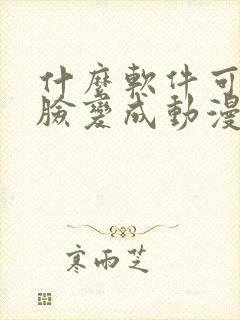 什麼軟件可
臉變成動漫
寒雨芝